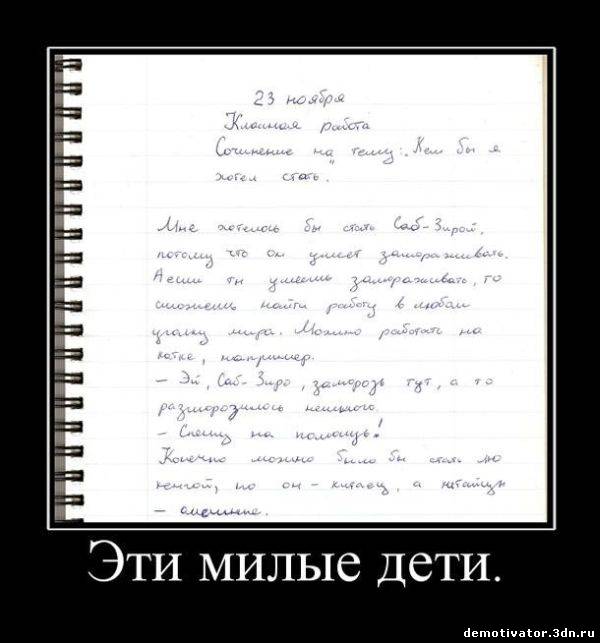 23 ноября
Классная работа
Сочинение на тему: „Кем бы я
хотел стать.
Мне хотелось бы стать Саб-Зирой,
потому что он умеет замораживать.
А если ты умеешь замораживать, то
сможешь найти работу в любом
уголку мира. Можно работать на
катке, например.
— Эй, Саб-Зиро, заморозь тут, а то
разморозилось немного.
— Спешу на помощь!
Конечно можно было бы стать лю
кенгой, но он – китаец, а китайцы
—
Эти милые дети.
demotivator.3dn.ru